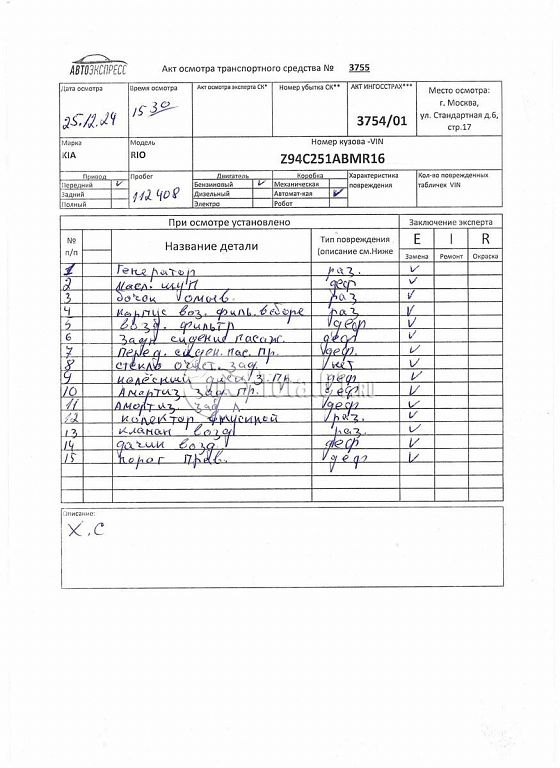 АВТОЭКСПРЕСС
Акт осмотра транспортного средства № 3755
Дата осмотра Время осмотра Акт осмотра эксперта СК* Номер убытка СК** АКТ ИНГОССТРАХ*** Место осмотра:
25.12.24 15 30 3754/01 г. Москва,
ул. Стандартная д.6,
стр.17
Марка Модель Номер кузова -VIN
KIA RIO Z94C251ABMR16
Привод Пробег Двигатель Коробка Характеристика Кол-во поврежденных
Передний V 112408 Бензиновый V Механическая повреждения табличек VIN
Задний Дизельный Автомат-кая V
Полный Электро Робот
При осмотре установлено Заключение эксперта
№ п/п Название детали Тип повреждения (описание см.Ниже E I R
Замена Ремонт Окраска
1 Генератор раз. V
2 Масл. щуп деф V
3 бочок омыв. раз V
4 корпус воз. филь. в сборе раз V
5 возд. фильтр деф V
6 Задн сидение пасаж. деф V
7 Перед. сиден. пас. пр. деф. V
8 стекло очист. зад. нет V
9 колёсный диск З. пр. деф V
10 Амартиз зад пр. деф V
11 Амортиз зад л деф V
12 колектор впускной раз. V
13 клапан возд раз. V
14 дачик возд. деф V
15 порог прав. деф V
Описание:
Х.С